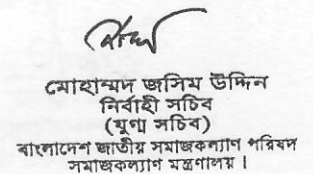 মোহাম্মদ জসিম উদ্দিন
নির্বাহী সচিব
(যুগ্ম সচিব)
বাংলাদেশ জাতীয় সমাজকল্যাণ পরিষদ
সমাজকল্যাণ মন্ত্রণালয় ।